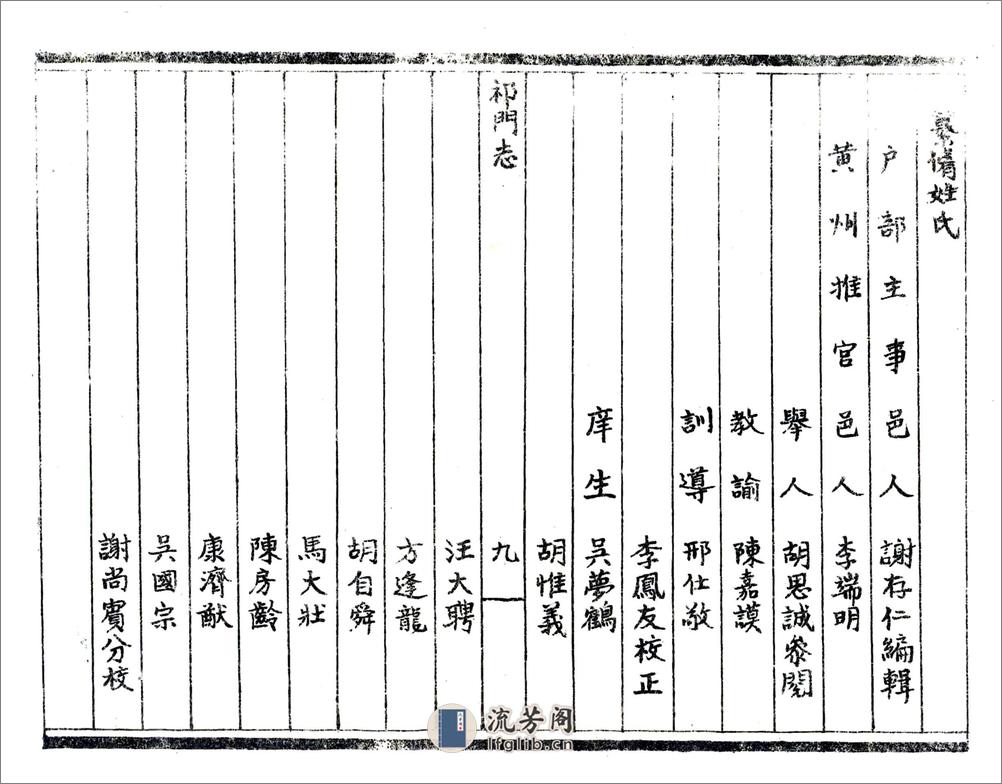 纂脩姓氏
户部主事邑人謝存仁編輯
黄州推官邑人李端明
舉人胡思誠叅閱
教諭陳嘉謨
訓導邢仕敬
李鳳友校正
庠生吳夢鶴
胡惟義
祁門志 九
汪大聘
方逢龍
胡自舜
馬大壯
陳房齡
康濟猷
吳國宗
謝尚賓分校
流芳阁
lfglib.cn